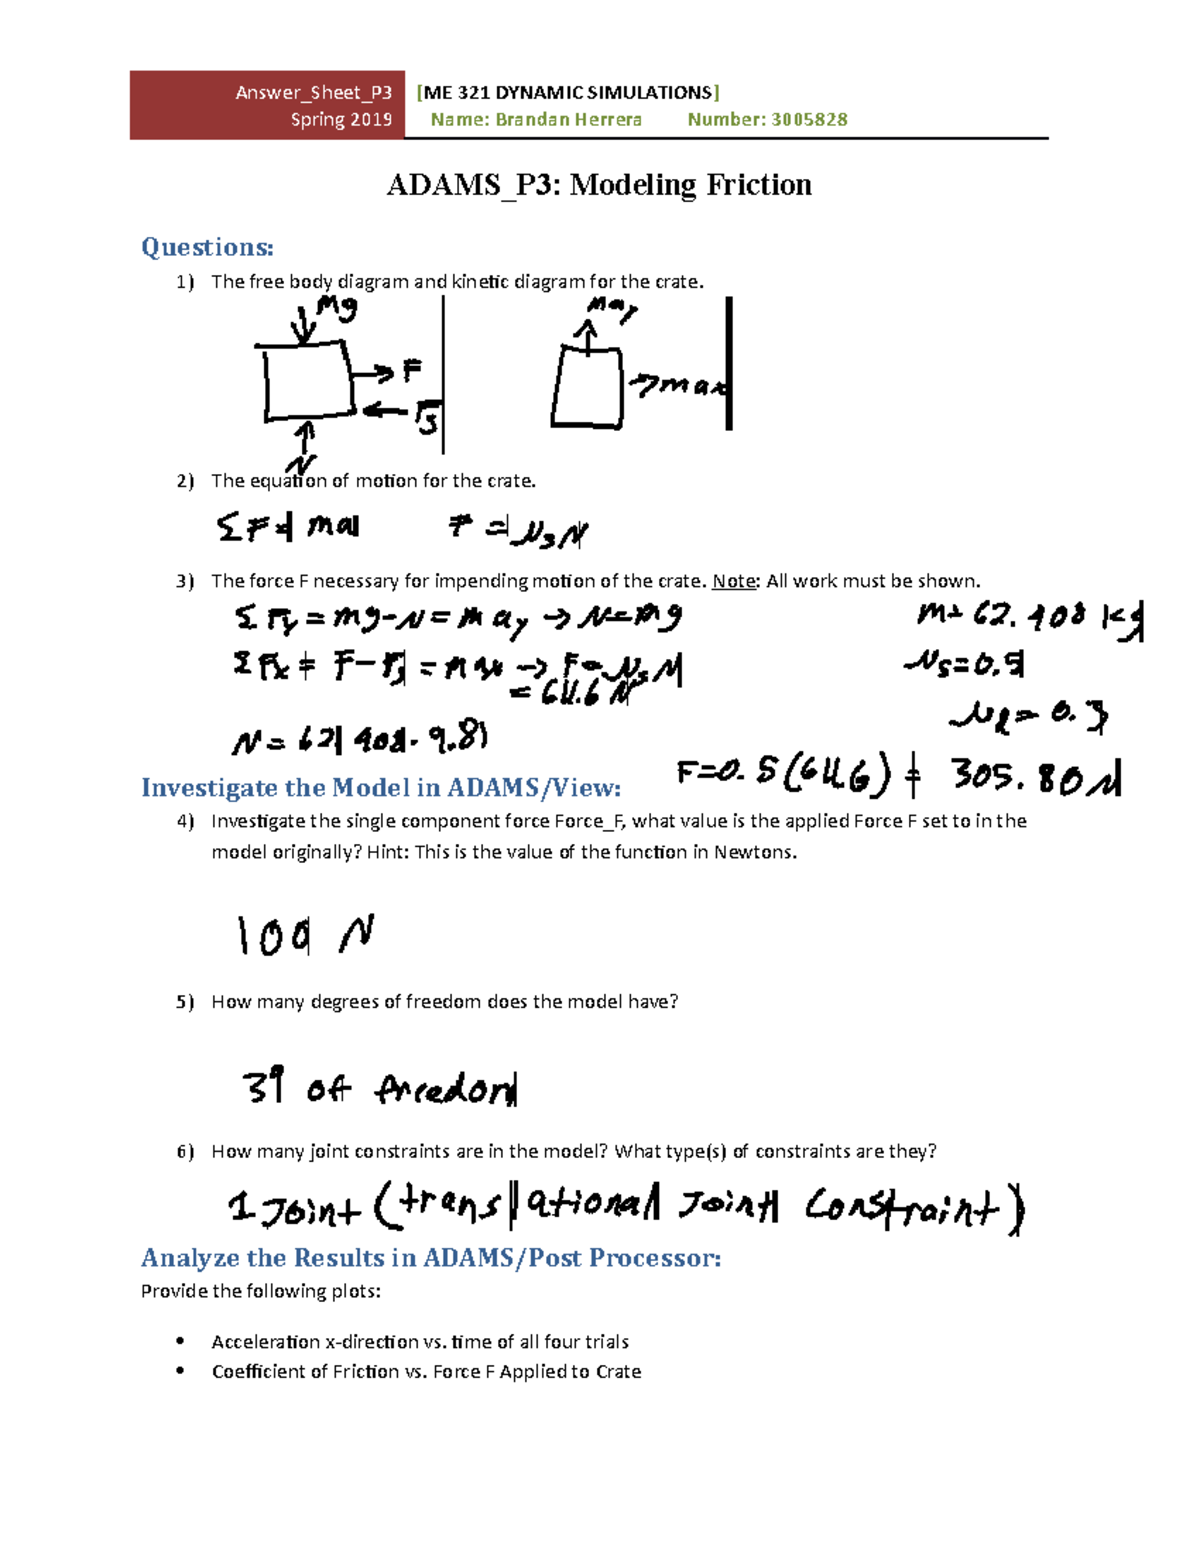 Answer_Sheet_P3 [ME 321 DYNAMIC SIMULATIONS]
Spring 2019 Name: Brandan Herrera Number: 3005828
ADAMS_P3: Modeling Friction
Questions:
1) The free body diagram and kinetic diagram for the crate.
Mg
may
F
max
N
2) The equation of motion for the crate.
ΣF = ma F = μsN
3) The force F necessary for impending motion of the crate. Note: All work must be shown.
ΣFy = mg - N = may → N = mg m = 62.408 kg
= max → F = μsN μs = 0.5
= 611.6 N
μk = 0.3
N = 62.408 · 9.81
F = 0.5(611.6) = 305.80 N
Investigate the Model in ADAMS/View:
4) Investigate the single component force Force_F, what value is the applied Force F set to in the
model originally? Hint: This is the value of the function in Newtons.
100 N
5) How many degrees of freedom does the model have?
3° of freedom
6) How many joint constraints are in the model? What type(s) of constraints are they?
1 Joint (translational Joint Constraint)
Analyze the Results in ADAMS/Post Processor:
Provide the following plots:
• Acceleration x-direction vs. time of all four trials
• Coefficient of Friction vs. Force F Applied to Crate